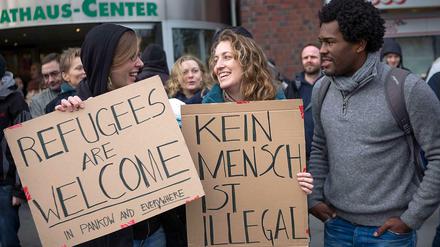 RATHAUS-CENTER
REFUGEES
ARE
WELCOME
IN PANKOW AND EVERYWHERE
KEIN
MENSCH
IST
ILLEGAL